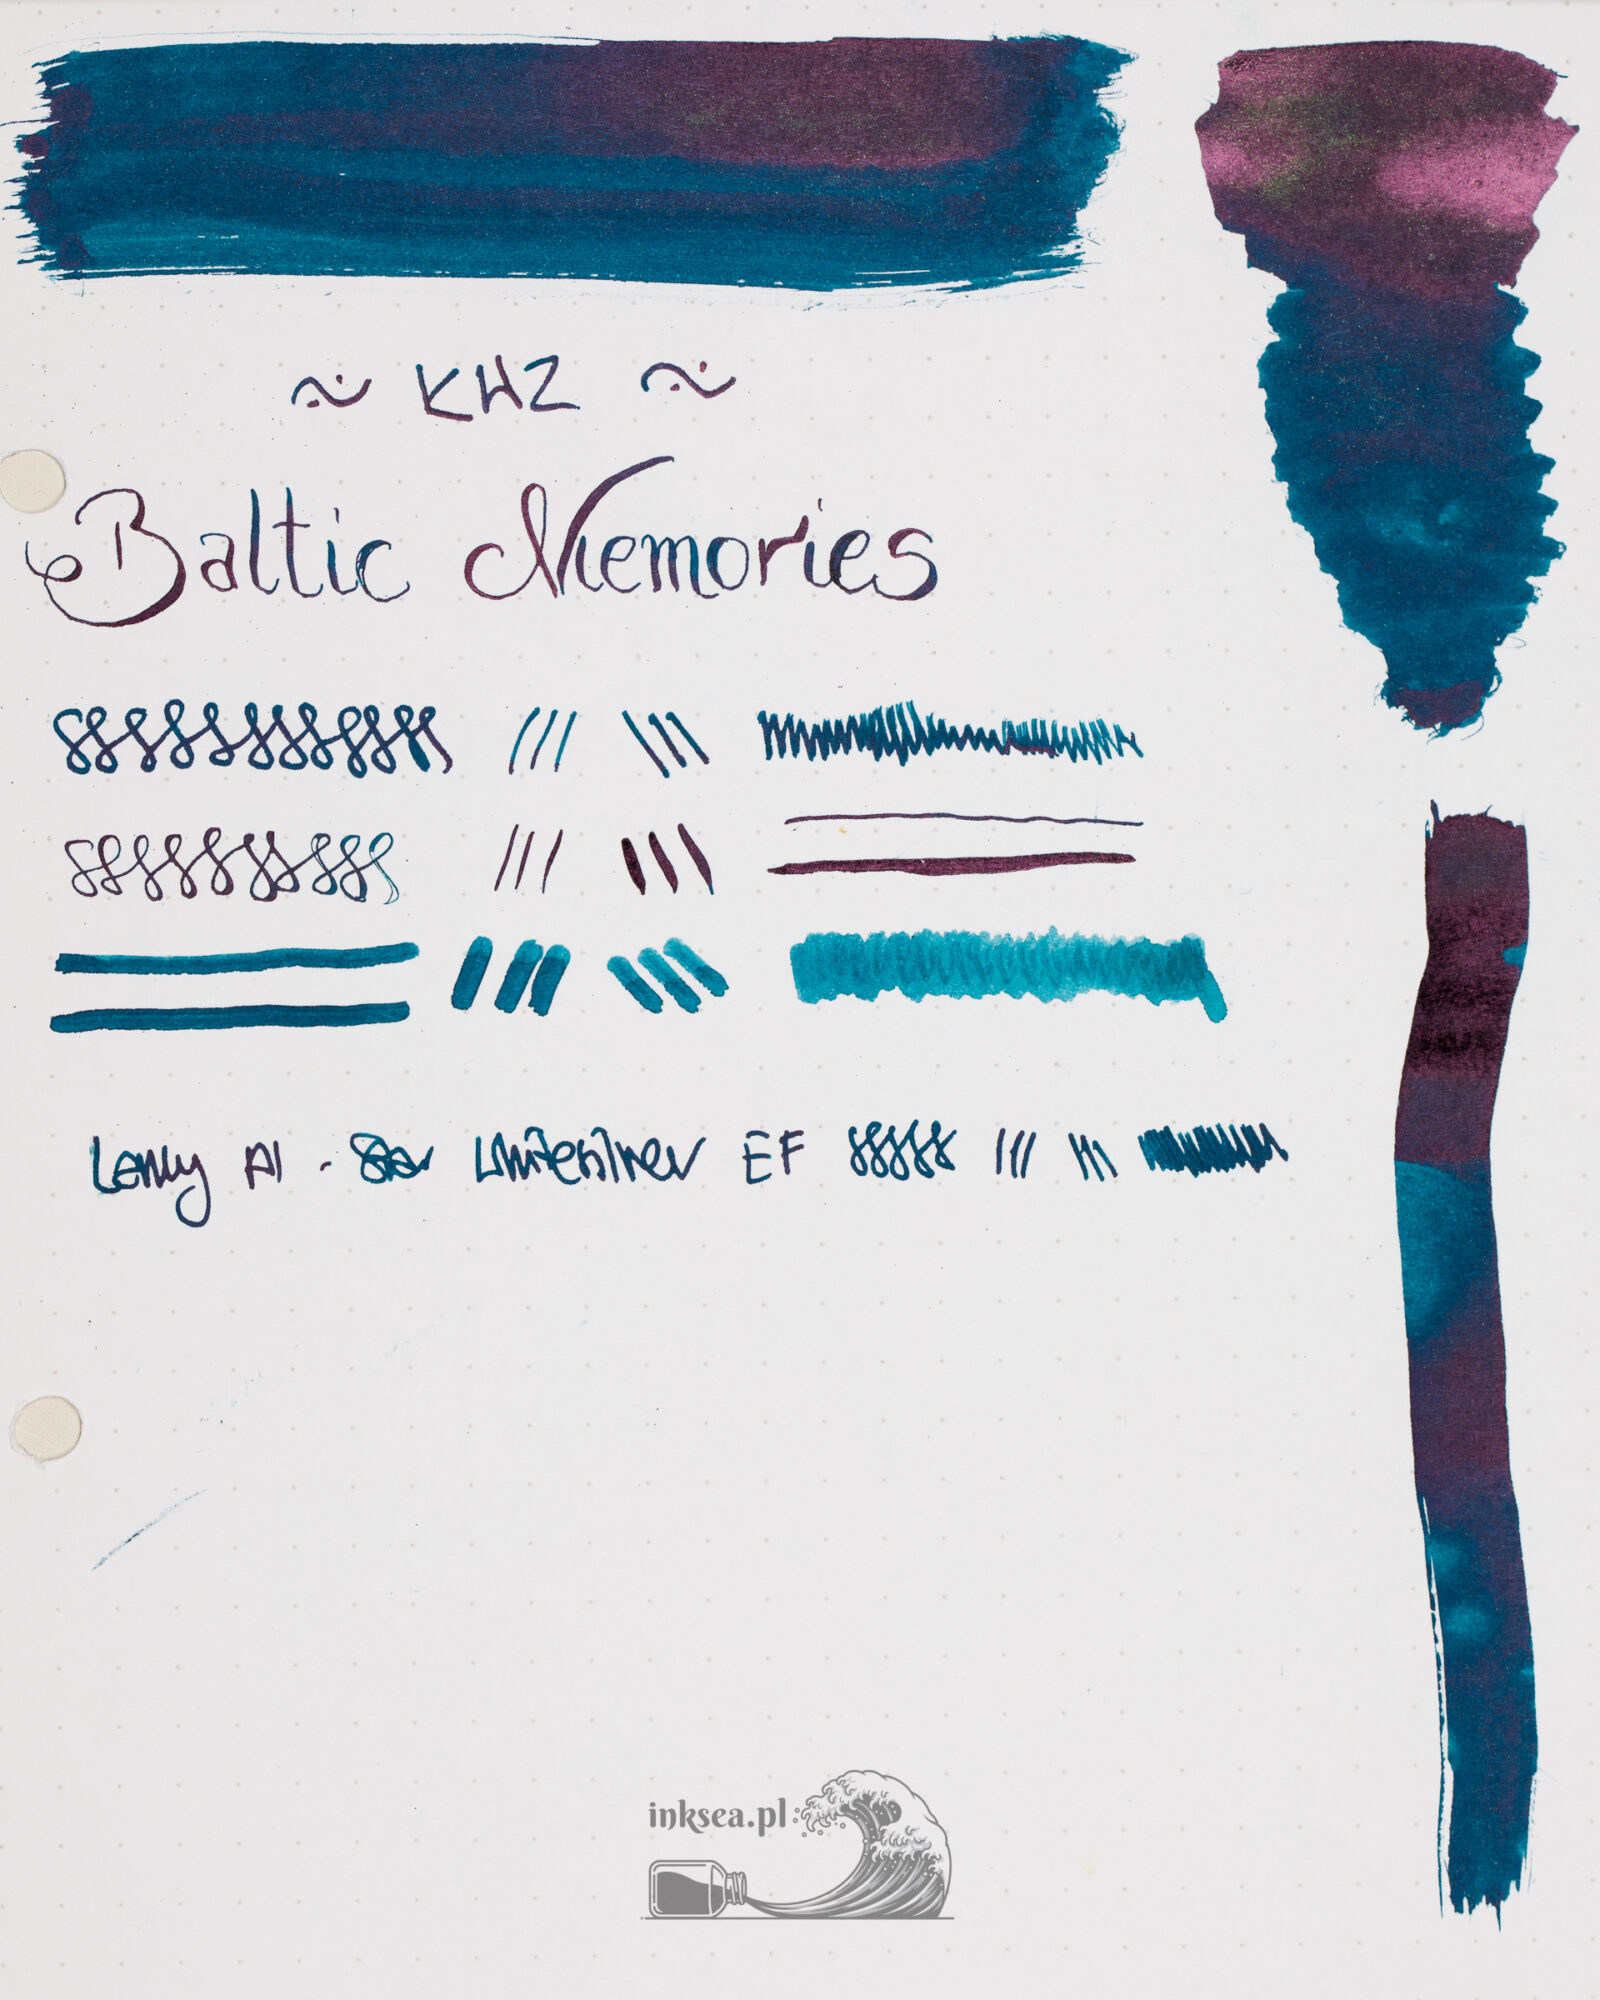 ~ KWZ ~
Baltic Memories
Lamy Al-Star Universilver EF
inksea.pl